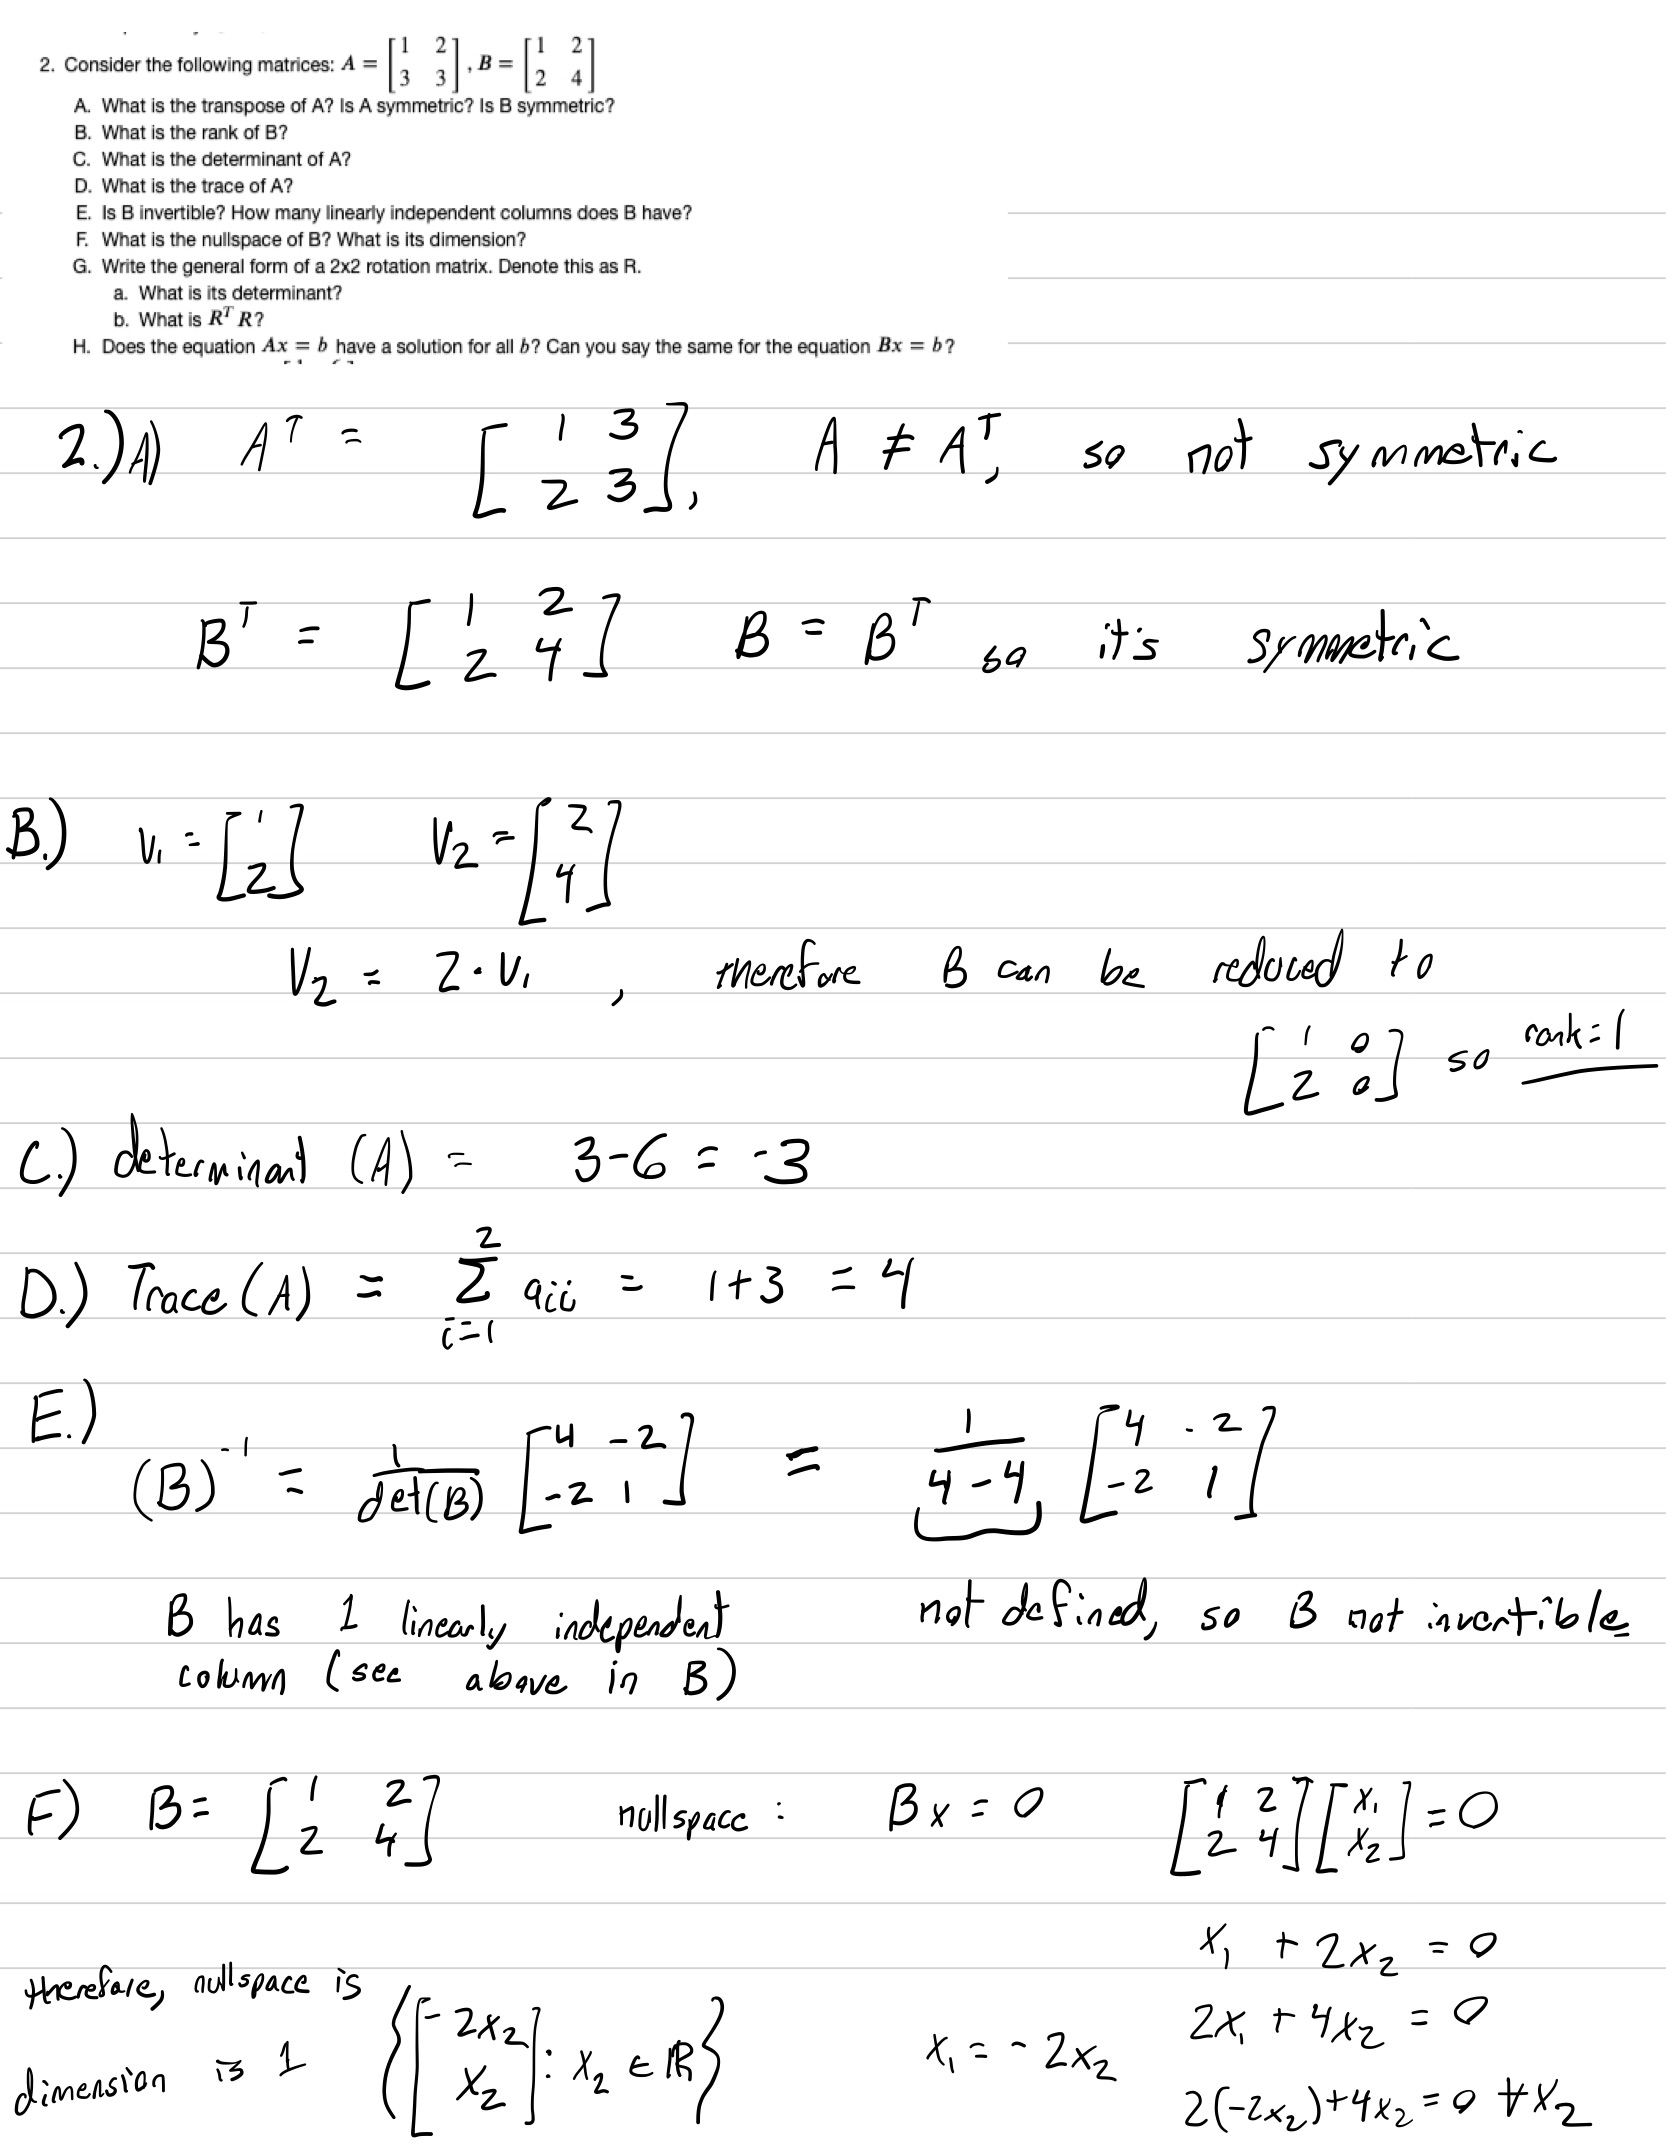 2. Consider the following matrices: A = [1 2; 3 3], B = [1 2; 2 4]
A. What is the transpose of A? Is A symmetric? Is B symmetric?
B. What is the rank of B?
C. What is the determinant of A?
D. What is the trace of A?
E. Is B invertible? How many linearly independent columns does B have?
F. What is the nullspace of B? What is its dimension?
G. Write the general form of a 2x2 rotation matrix. Denote this as R.
a. What is its determinant?
b. What is Rᵀ R?
H. Does the equation Ax = b have a solution for all b? Can you say the same for the equation Bx = b?
2.) A) Aᵀ = [1 3; 2 3], A ≠ Aᵀ, so not symmetric
Bᵀ = [1 2; 2 4] B = Bᵀ so it's symmetric
B.) V₁ = [1; 2] V₂ = [2; 4]
V₂ = 2·V₁, therefore B can be reduced to
[1 0; 2 0] so rank=1
C.) determinant (A) = 3-6 = -3
D.) Trace(A) = Σ_{i=1}^{2} aii = 1+3 = 4
E.)
(B)⁻¹ = 1/det(B) [4 -2; -2 1] = 1/(4-4) [4 -2; -2 1]
B has 1 linearly independent
column (see above in B)
not defined, so B not invertible
F) B= [1 2; 2 4] nullspace: Bx = 0 [1 2; 2 4][x₁; x₂] = 0
x₁ + 2x₂ = 0
2x₁ + 4x₂ = 0
x₁ = -2x₂
2(-2x₂)+4x₂ = 0 ∀x₂
therefore, nullspace is
{[-2x₂; x₂] : x₂ ∈ ℝ}
dimension is 1